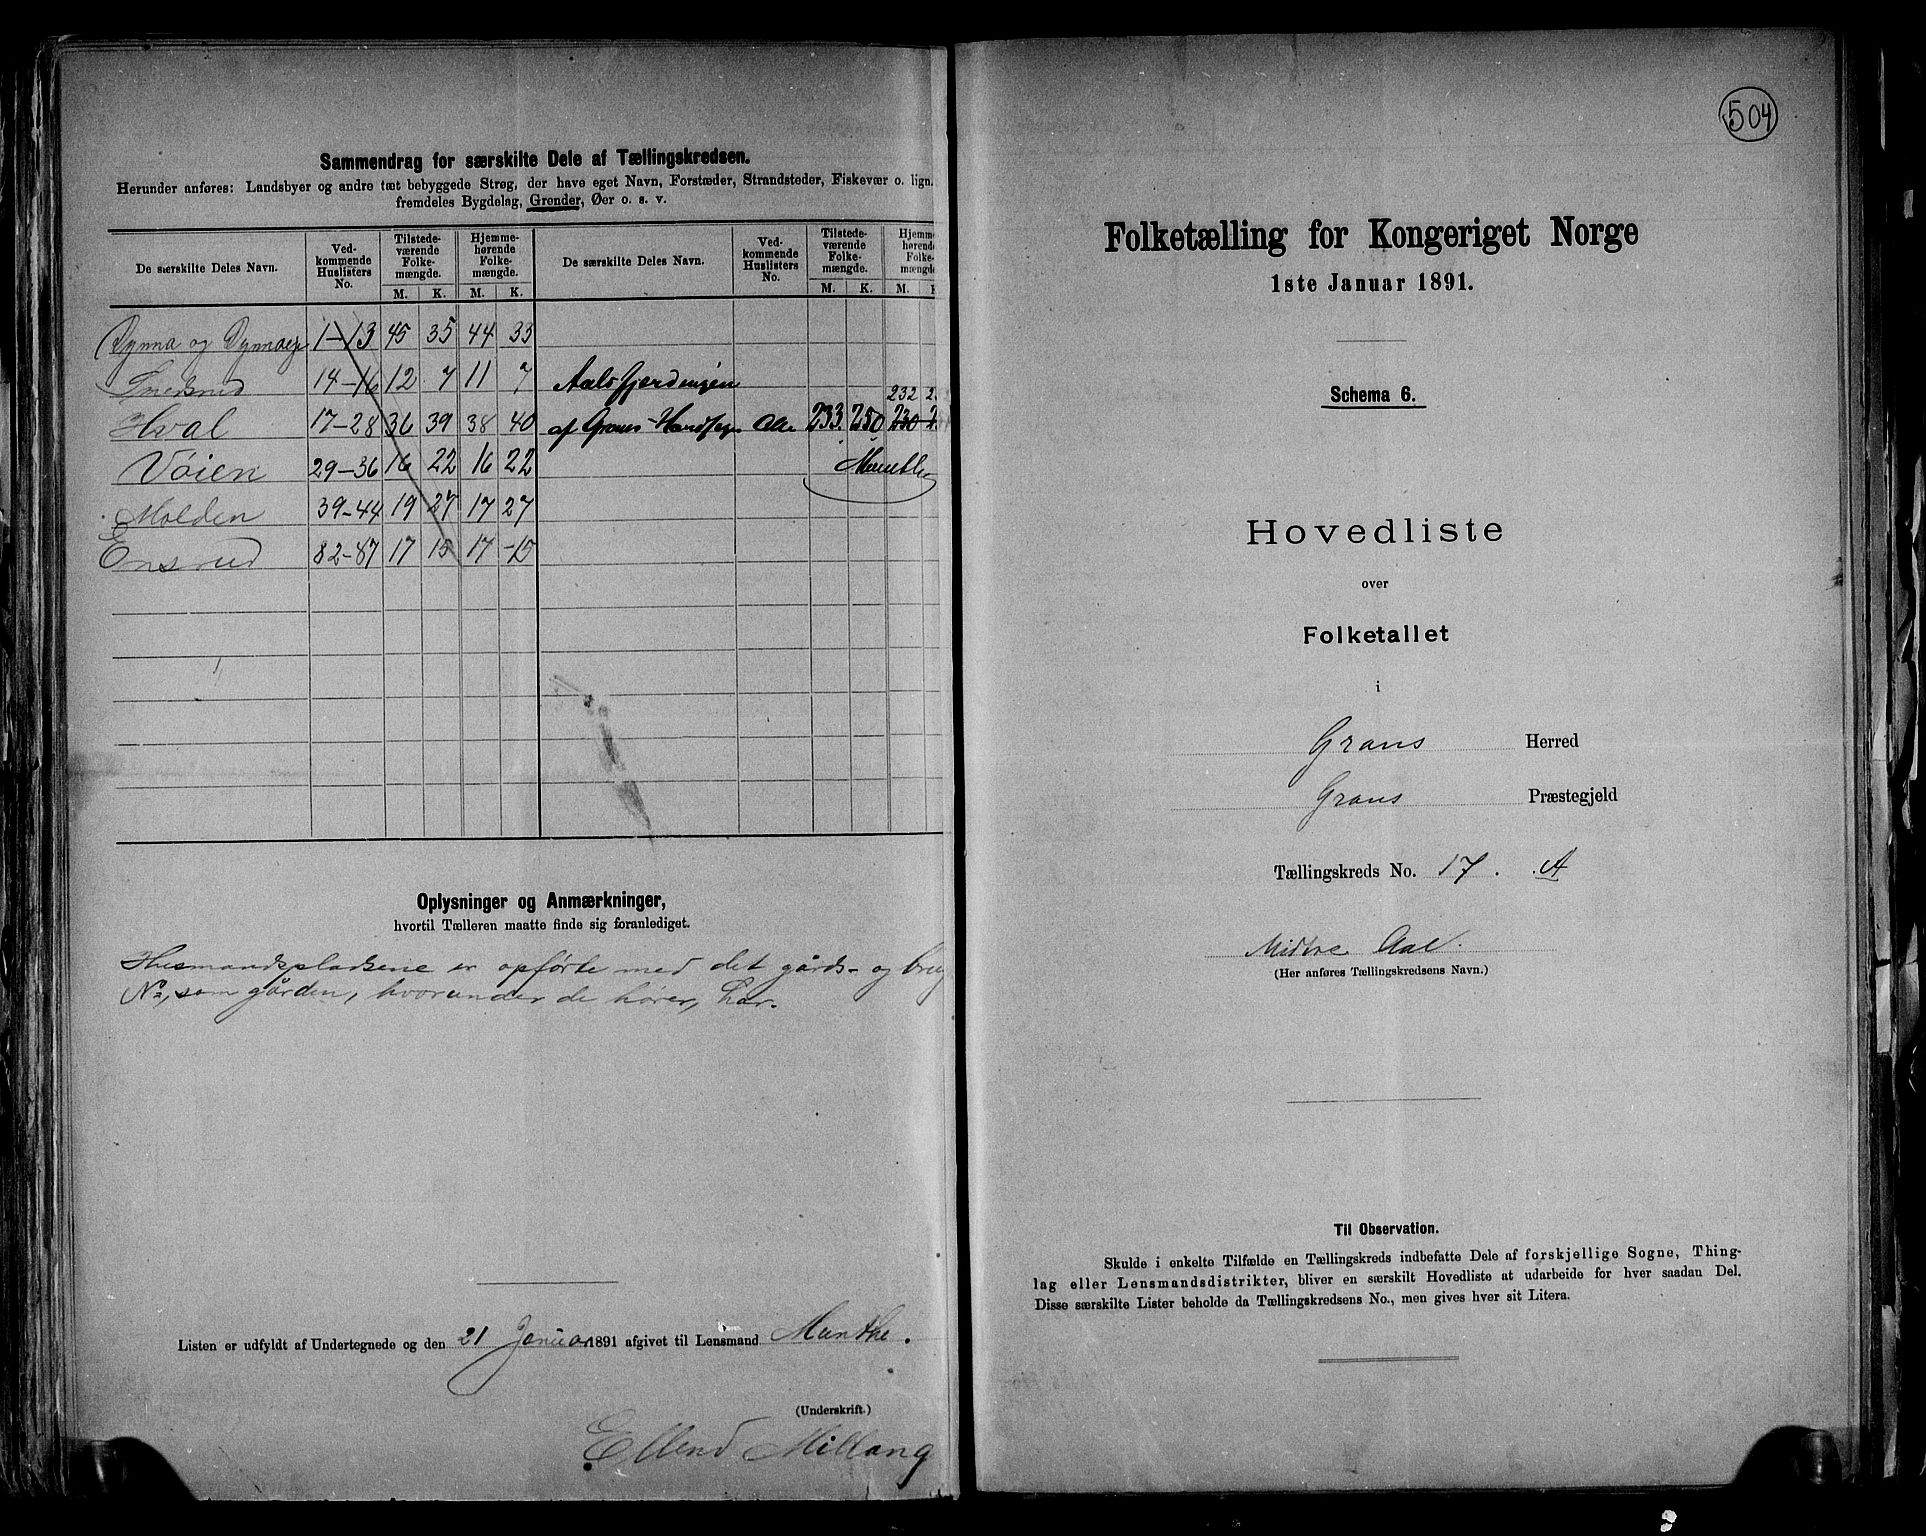 Sammendrag for særskilte Dele af Tællingskredsen.
Herunder anføres: Landsbyer og andre tæt bebyggede Strøg, der have eget Navn, Forstæder, Strandsteder, Fiskevær o. lign.
fremdeles Bygdelag, Grender, Øer o. s. v.
De særskilte Deles Navn. Ved-kommende Huslisters No. Tilstede-værende Folke-mængde. Hjemme-hørende Folke-mængde. De særskilte Deles Navn. Ved-kommende Huslisters No. Tilstede-værende Folke-mængde. Hjemme-hørende Folke-mængde.
M. K. M. K. M. K. M.
Dynna og 1-13 45 35 44 33
14-16 12 7 11 7 Aalsfjerdingen 232
Hval 17-28 36 39 38 40 af Grans Alle 233 250 230
Vøien 29-36 16 22 16 22 Munthe
Molden 39-44 19 27 17 27
Ensrud 82-87 17 15 17 15
Oplysninger og Anmærkninger,
hvortil Tælleren maatte finde sig foranlediget.
Husmandspladsene er opførte med det gårds- og brug
No, som gården, hvorunder de hører, har.
Listen er udfyldt af Undertegnede og den 21 Januar 1891 afgivet til Lensmand Munthe.
(Underskrift.)
Ellend Millang
504
Folketælling for Kongeriget Norge
1ste Januar 1891.
Schema 6.
Hovedliste
over
Folketallet
i
Grans Herred
Grans Præstegjeld
Tællingskreds No. 17. A
Midtre Aal.
(Her anføres Tællingskredsens Navn.)
Til Observation.
Skulde i enkelte Tilfælde en Tællingskreds indbefatte Dele af forskjellige Sogne, Thing-
lag eller Lensmandsdistrikter, bliver en særskilt Hovedliste at udarbeide for hver saadan Del.
Disse særskilte Lister beholde da Tællingskredsens No., men gives hver sit Litera.